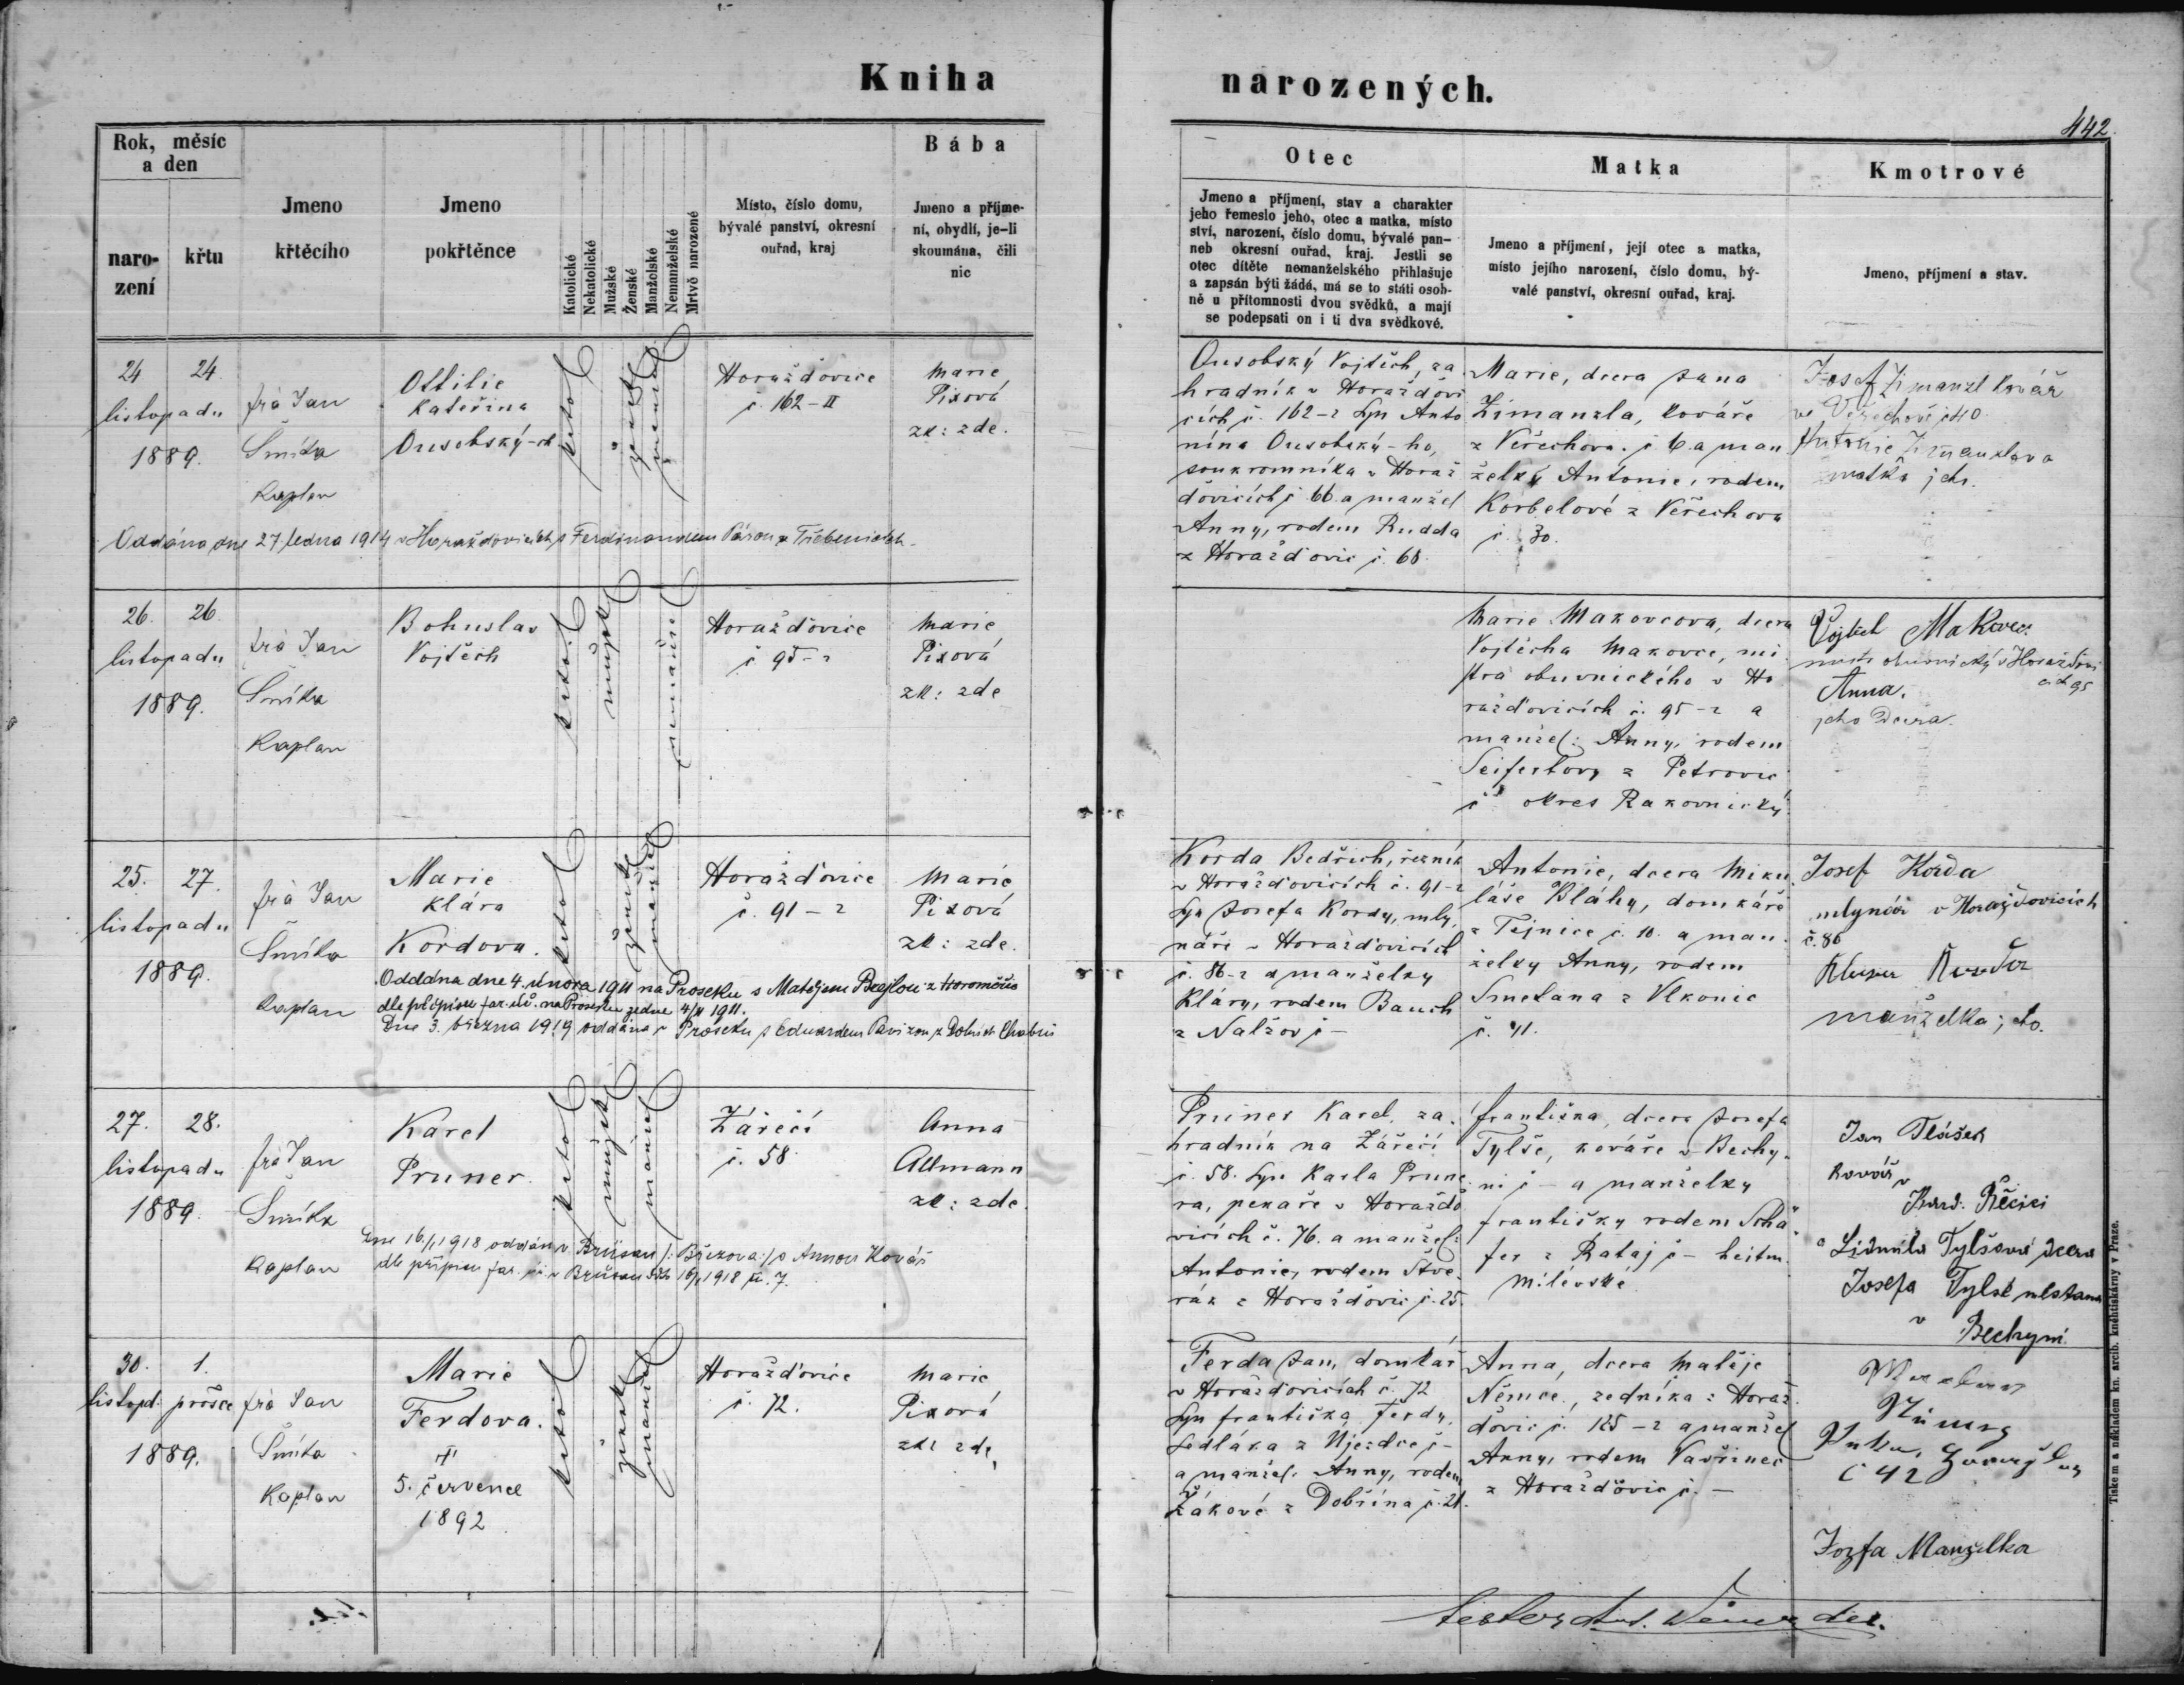 Kniha
narozených.
442.
Rok, měsíc
a den
naro-
zení
křtu
Jmeno
křtěcího
Jmeno
pokřtěnce
Katolické
Nekatolické
Mužské
Ženské
Manželské
Nemanželské
Mrtvě narozené
Místo, číslo domu,
bývalé panství, okresní
ouřad, kraj
Bába
Jmeno a příjme-
ní, obydlí, je-li
skoumána, čili
nic
Otec
Jmeno a příjmení, stav a charakter
jeho řemeslo jeho, otec a matka, místo
ství, narození, číslo domu, bývalé pan-
neb okresní ouřad, kraj. Jestli se
otec dítěte nemanželského přihlašuje
a zapsán býti žádá, má se to státi osob-
ně u přítomnosti dvou svědků, a mají
se podepsati on i ti dva svědkové.
Matka
Jmeno a příjmení, její otec a matka,
místo jejího narození, číslo domu, bý-
valé panství, okresní ouřad, kraj.
Kmotrové
Jmeno, příjmení a stav.
24 24
listopadu
1889.
frà Jan
Šmíka
Kaplan
Ottilie
Kateřina
Ousobský-ch
katol
žensk
manžel
Horažďovice
č. 162-II
Marie
Pixová
zk: zde.
Ousobský Vojtěch, za
hradník v Horažďovi
cích č. 162-2 syn Anto
nína Ousobský-ho,
soukromníka v Horaž
ďovicích č 66 a manžel
Anny, rodem Rudda
z Horažďovic č. 68.
Marie, dcera Jana
Zimanzla, kováře
z Veřechova. č 6 a man
želky Antonie, rodem
Korbelové z Veřechova
č. 30.
Josef Zimanzl kovář
ve Veřechově č 40
matka jeh.
Oddána dne 27 ledna 1914 v Horažďovicích s Ferdinandem z Třebenicích.
26. 26.
listopadu
1889.
frà Jan
Šmíka
Kaplan
Bohuslav
Vojtěch
katol
mužsk
nemanžel
Horažďovice
č 95-2
Marie
Pixová
zk: zde
Marie Makovcova, dcera
Vojtěcha Makovce, mi
stra obuvnického v Ho
ražďovicích č. 95-2 a
manžel: Anny, rodem
Seifertovy z Petrovic
č okres Rakovnický
Vojtěch Makovec
mistr obuvnický v Horažďovi
cích 95
Anna.
jeho Dcera.
25. 27.
listopadu
1889.
frà Jan
Šmíka
Kaplan
Marie
Klára
Kordova.
katol
žensk
manžel
Horažďovice
č. 91-2
Marie
Pixová
zk: zde.
Oddána dne 4. února 1911 na Proseku s Matějem
dle přípisu far. úř. na Proseku ze dne 4/II 1911.
Dne 3. března 1919 oddána v Proseku s Eduardem z Dolních Chaber
Korda Bedřich, řezník
v Horažďovicích č. 91-2
syn Josefa Kordy, mly
náře v Horažďovicích
č. 86-2 a manželky
Kláry, rodem Bauch
z Nalžov č-
Antonie, dcera Miku
láše Bláhy, domkáře
z Tejnice č. 10. a man
želky Anny, rodem
Smetana z Vlkonic
č. 41.
Josef Korda
mlynář v Horažďovicích
č. 86
manželka jeho.
27. 28.
listopadu
1889.
frà Jan
Šmíka
Kaplan
Karel
Pruner.
katol
mužsk
manžel
Zářečí
č. 58
Anna
Allmann
zk: zde.
Dne 16./1 1918 oddán v Brüsau /: Březova :/ s Annou Kovář
dle přípisu far. úř. v Brüsau 16/1 1918 č. 7.
Pruner Karel, za
hradník na Zářečí
č. 58. syn Karla Prune
ra, pekaře v Horažďo
vicích č. 76. a manžel:
Antonie, rodem
z Horažďovic č. 25.
františka, dcera Josefa
Tylše, kováře v Bechy
ni č - a manželky
františky rodem Schä
fer z Rataj č - hejtm.
milévské
Jan Tlášek
kovář v
Kard. Řečici
a Lidmila Tylšová dcera
Josefa Tylše
v
Bechyni.
30. 1.
listopd. prosce
1889.
frà Jan
Šmíka
Kaplan
Marie
Ferdova.
†
5. července
1892
katol
žensk
manžel
Horažďovice
č. 72.
Marie
Pixová
zk: zde
Ferda Jan, domkář
v Horažďovicích č. 72
syn františka Ferdy,
sedláka z Újezdce č-
a manžel: Anny, rodem
Žákové z Dobšína č. 21.
Anna, dcera Matěje
Němce, zedníka z Horaž
ďovic č. 125-2 a manžel
Anny, rodem Vavřinec
z Horažďovic č. -
č 42
Jozfa Manželka
Tiskem a nákladem kn. arcib. kněhtiskárny v Praze.